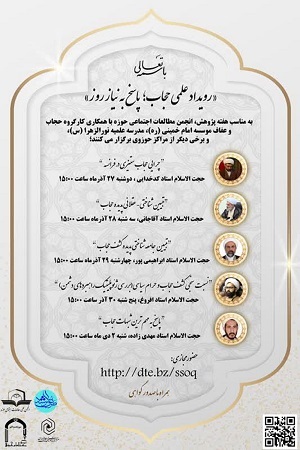 باسمه تعالی
«رویداد علمی حجاب؛ پاسخ به نیاز روز»
به مناسبت هفته پژوهش، انجمن مطالعات اجتماعی حوزه با همکاری کارگروه حجاب
و عفاف موسسه امام خمینی (ره)، مدرسه علمیه نورالزهرا (س)،
و برخی دیگر از مراکز حوزوی برگزار می کنند؛
"چرایی حجاب ستیزی در فرانسه"
حجت الاسلام استاد کدخدایی، دوشنبه ۲۷ آذرماه ساعت ۱۵:۰۰
"تبیین شناختی - عقلانی پدیده حجاب"
حجت الاسلام استاد آقاجانی، سه شنبه ۲۸ آذرماه ساعت ۱۵:۰۰
"تبیین جامعه شناختی پدیده کشف حجاب"
حجت الاسلام استاد ابراهیمی پور، چهارشنبه ۲۹ آذرماه ساعت ۱۵:۰۰
کشف حجاب و حرام سیاسی
حجت الاسلام استاد افروغ، پنج شنبه ۳۰ آذر ساعت ۱۵:۰۰
"پاسخ به مهم ترین شبهات حجاب"
حجت الاسلام استاد مهدی زاده، شنبه ۲ دی ماه ساعت ۱۵:۰۰
حضور مجازی:
http://dte.bz/ssoq
همراه با صدور گواهی